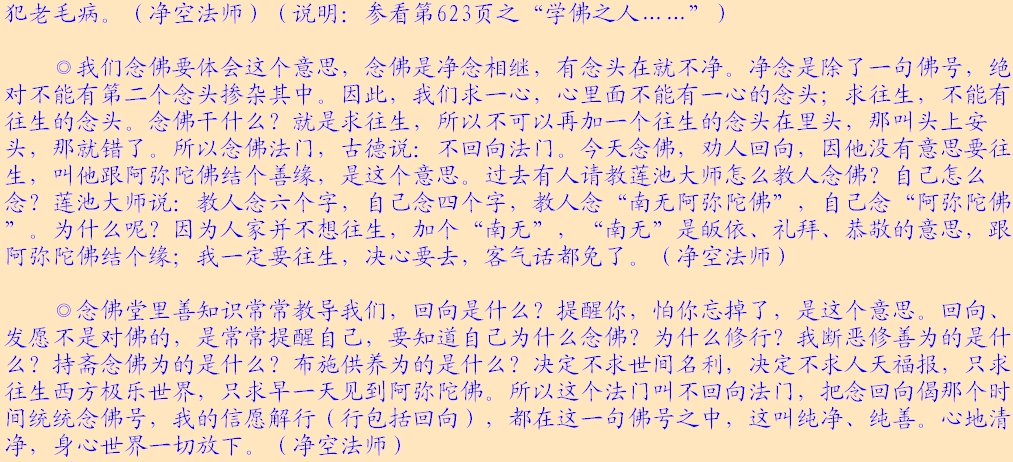 犯老毛病。（净空法师）（说明：参看第623页之“学佛之人……”）
◎我们念佛要体会这个意思，念佛是净念相继，有念头在就不净。净念是除了一句佛号，绝
对不能有第二个念头掺杂其中。因此，我们求一心，心里面不能有一心的念头；求往生，不能有
往生的念头。念佛干什么？就是求往生，所以不可以再加一个往生的念头在里头，那叫头上安
头，那就错了。所以念佛法门，古德说：不回向法门。今天念佛，劝人回向，因他没有意思要往
生，叫他跟阿弥陀佛结个善缘，是这个意思。过去有人请教莲池大师怎么教人念佛？自己怎么
念？莲池大师说：教人念六个字，自己念四个字，教人念“南无阿弥陀佛”，自己念“阿弥陀佛
”。为什么呢？因为人家并不想往生，加个“南无”，“南无”是皈依、礼拜、恭敬的意思，跟
阿弥陀佛结个缘；我一定要往生，决心要去，客气话都免了。（净空法师）
◎念佛堂里善知识常常教导我们，回向是什么？提醒你，怕你忘掉了，是这个意思。回向、
发愿不是对佛的，是常常提醒自己，要知道自己为什么念佛？为什么修行？我断恶修善为的是什
么？持斋念佛为的是什么？布施供养为的是什么？决定不求世间名利，决定不求人天福报，只求
往生西方极乐世界，只求早一天见到阿弥陀佛。所以这个法门叫不回向法门，把念回向偈那个时
间统统念佛号，我的信愿解行（行包括回向），都在这一句佛号之中，这叫纯净、纯善。心地清
净，身心世界一切放下。（净空法师）